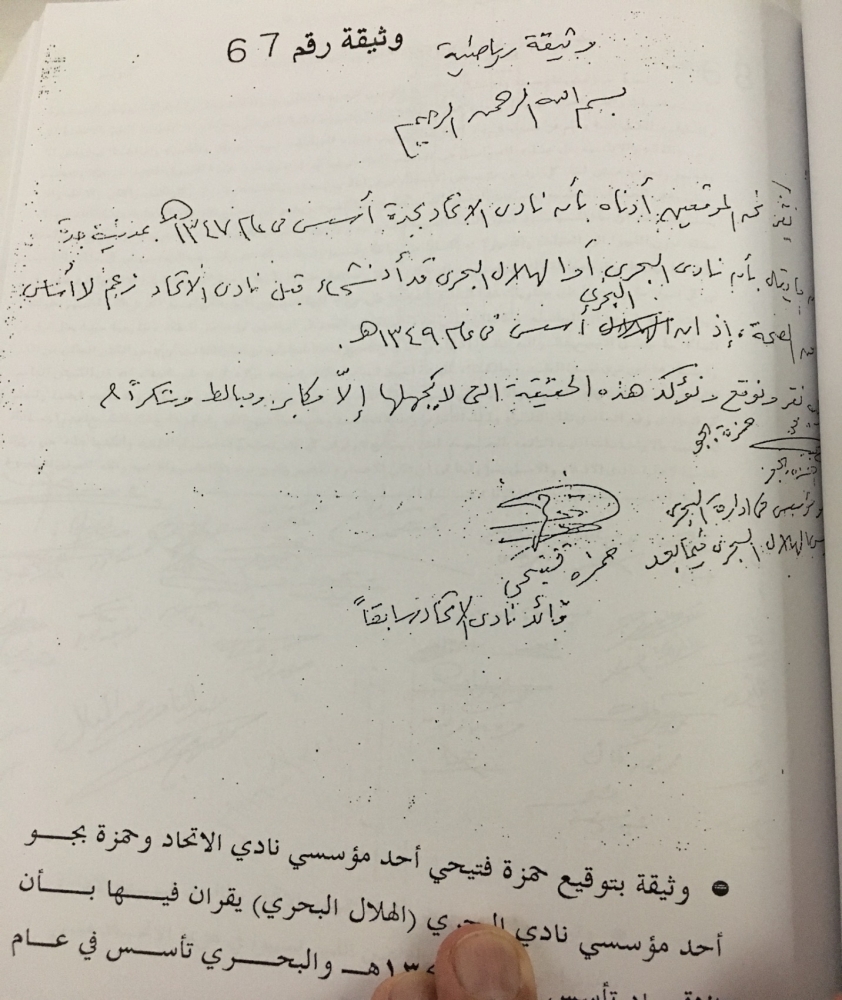 وثيقة رياضية وثيقة رقم 67
بسم الله الرحمن الرحيم
نحن الموقعين أدناه بأن نادي الاتحاد بجدة أسس في عام ١٣٤٧هـ بمدينة جدة
يقال بأن نادي البحري أو الهلال البحري قد أنشئ قبل نادي الاتحاد زعم لا أساس
البحري
الصحة، إذ ان الهلال أسس في عام ١٣٤٩هـ.
نقر ونوقع ونؤكد هذه الحقيقة التي لا يجهلها إلّا مكابر ومغالط وشكراً م
حمزة بجو
إدارة البحري
الهلال البحري فيما بعد
حمزة فتيحي
قائد نادي الاتحاد سابقاً
وثيقة بتوقيع حمزة فتيحي أحد مؤسسي نادي الاتحاد وحمزة بجو
أحد مؤسسي نادي البحري (الهلال البحري) يقران فيها بأن
هـ والبحري تأسس في عام